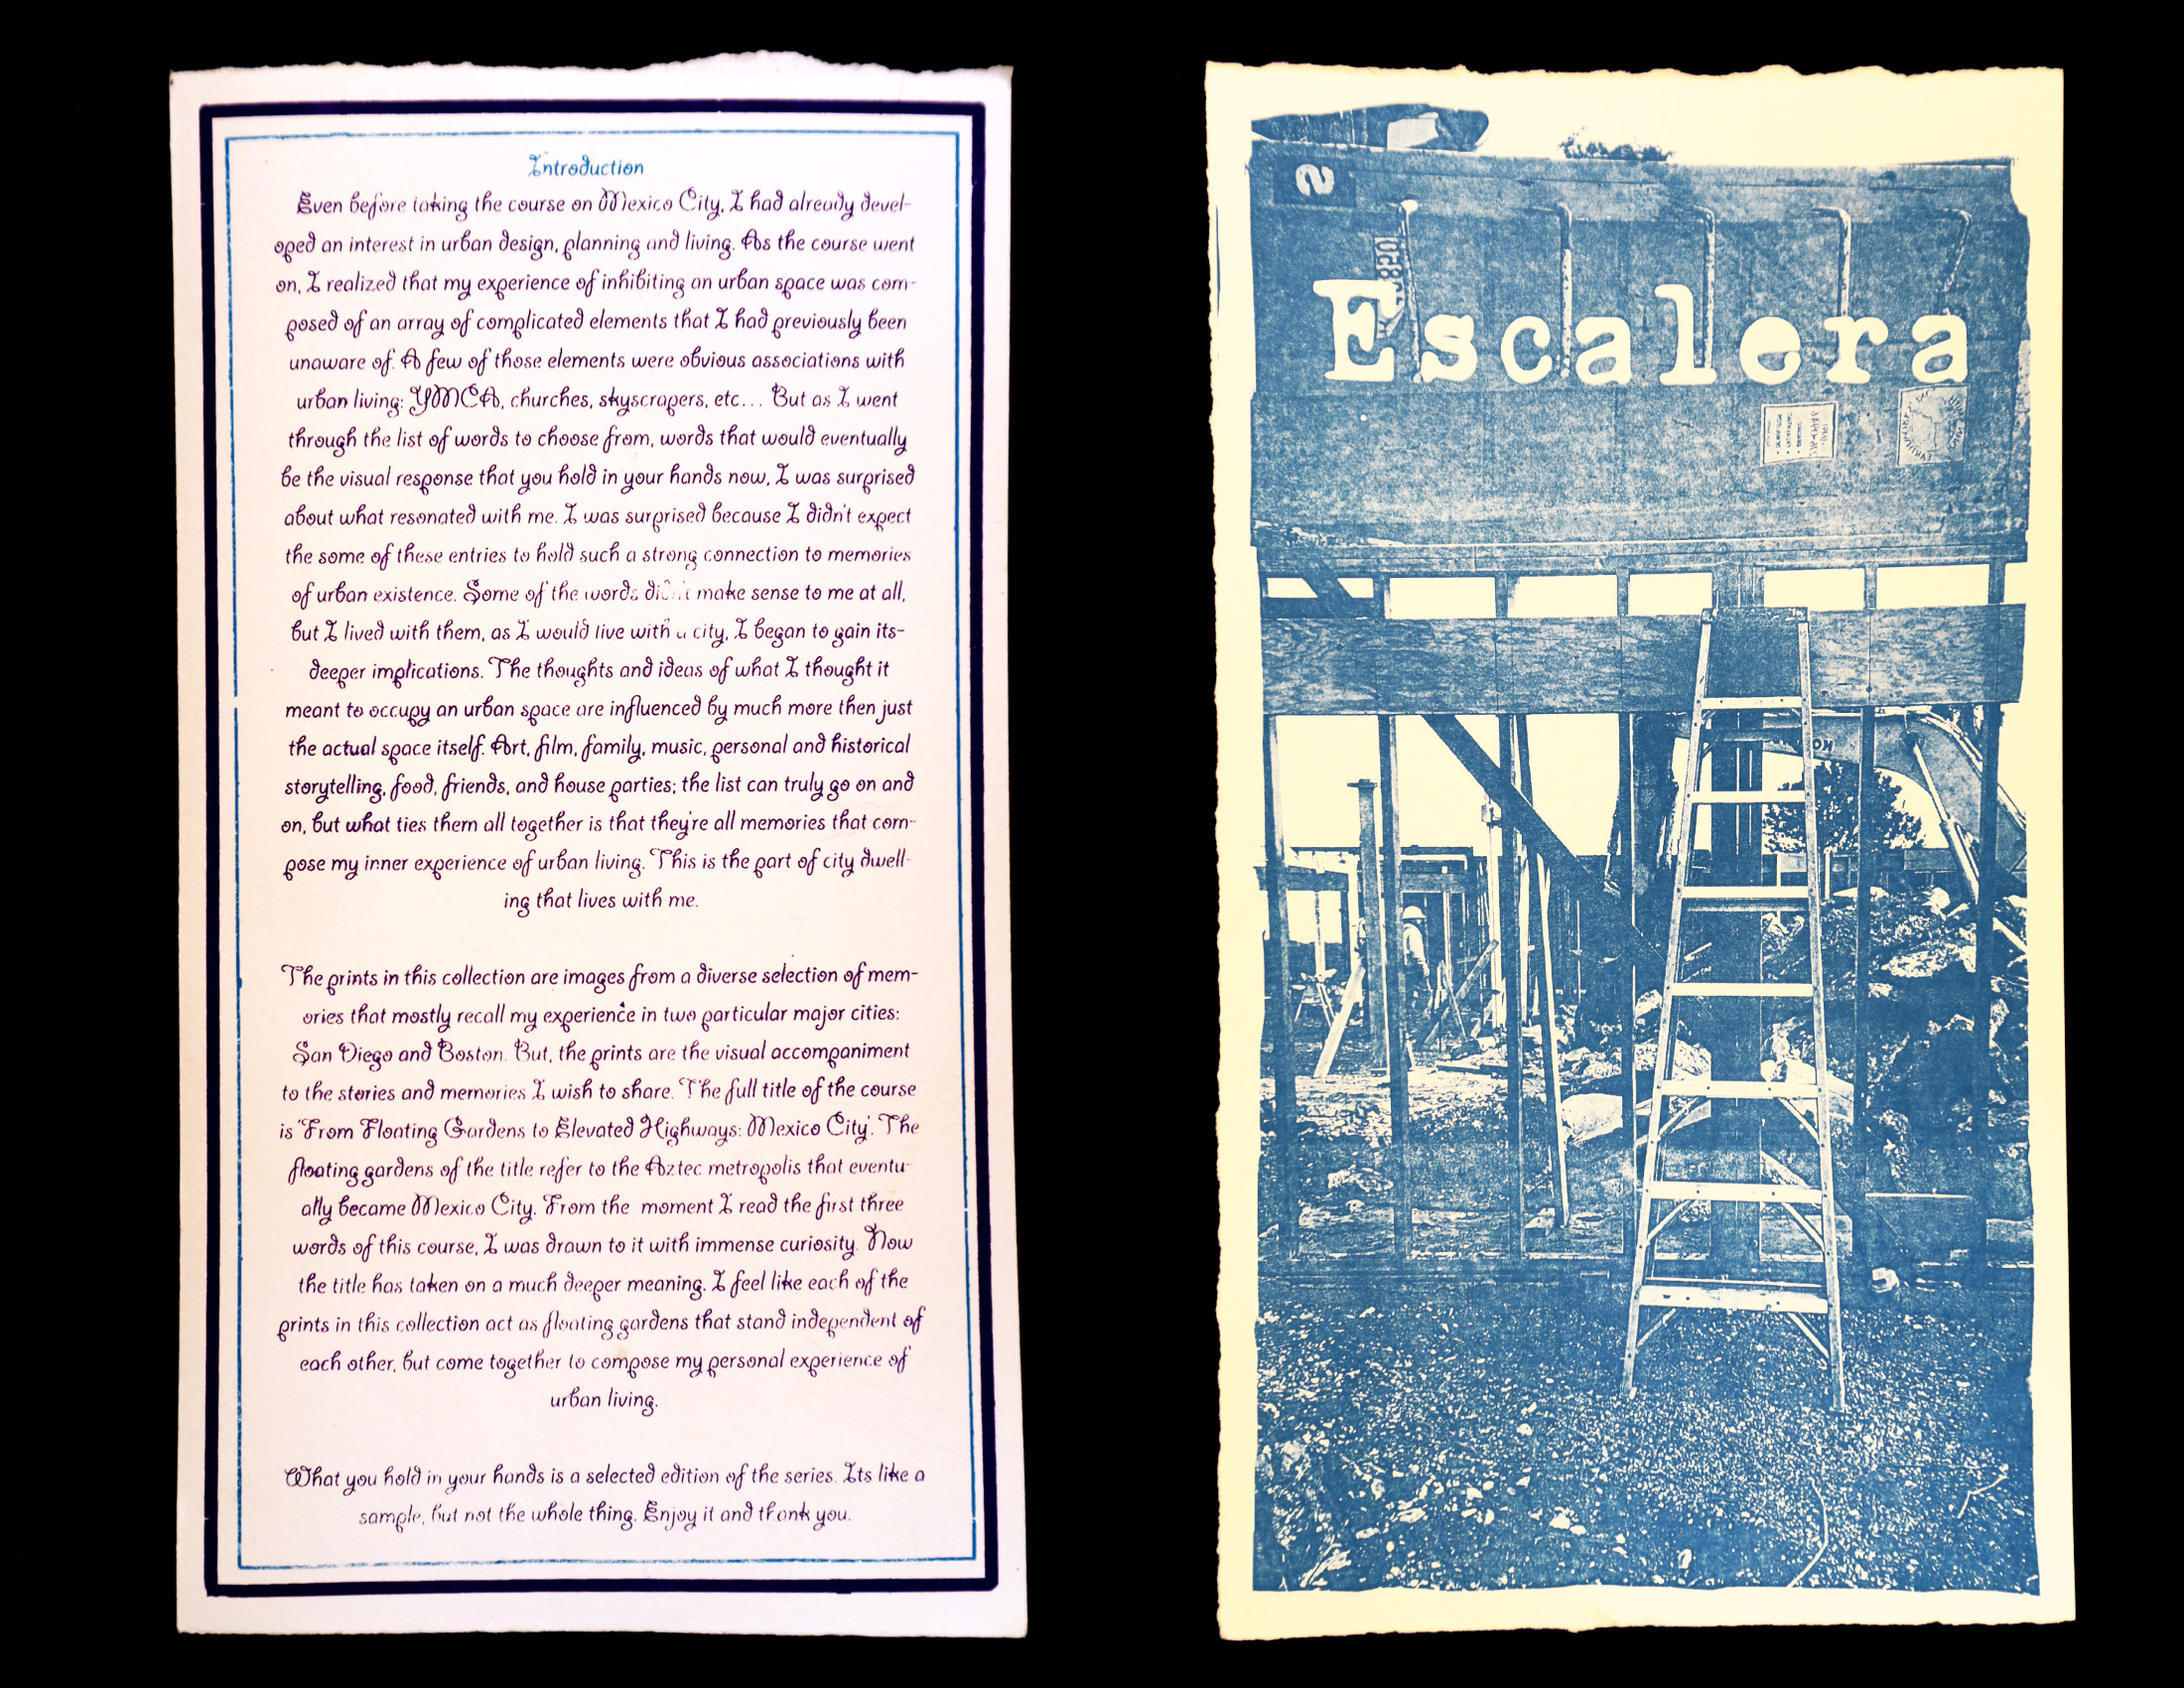 Introduction
Even before taking the course on Mexico City, I had already devel-
oped an interest in urban design, planning and living. As the course went
on, I realized that my experience of inhibiting an urban space was com-
posed of an array of complicated elements that I had previously been
unaware of. A few of those elements were obvious associations with
urban living: YMCA, churches, skyscrapers, etc... But as I went
through the list of words to choose from, words that would eventually
be the visual response that you hold in your hands now, I was surprised
about what resonated with me. I was surprised because I didn't expect
the some of these entries to hold such a strong connection to memories
of urban existence. Some of the words didn't make sense to me at all,
but I lived with them, as I would live with a city, I began to gain its-
deeper implications. The thoughts and ideas of what I thought it
meant to occupy an urban space are influenced by much more then just
the actual space itself. Art, film, family, music, personal and historical
storytelling, food, friends, and house parties; the list can truly go on and
on, but what ties them all together is that they're all memories that com-
pose my inner experience of urban living. This is the part of city dwell-
ing that lives with me.
The prints in this collection are images from a diverse selection of mem-
ories that mostly recall my experience in two particular major cities:
San Diego and Boston. But, the prints are the visual accompaniment
to the stories and memories I wish to share. The full title of the course
is "From Floating Gardens to Elevated Highways: Mexico City". The
floating gardens of the title refer to the Aztec metropolis that eventu-
ally became Mexico City. From the moment I read the first three
words of this course, I was drawn to it with immense curiosity. Now
the title has taken on a much deeper meaning. I feel like each of the
prints in this collection act as floating gardens that stand independent of
each other, but come together to compose my personal experience of
urban living.
What you hold in your hands is a selected edition of the series. Its like a
sample, but not the whole thing. Enjoy it and thank you.
2
Escalera